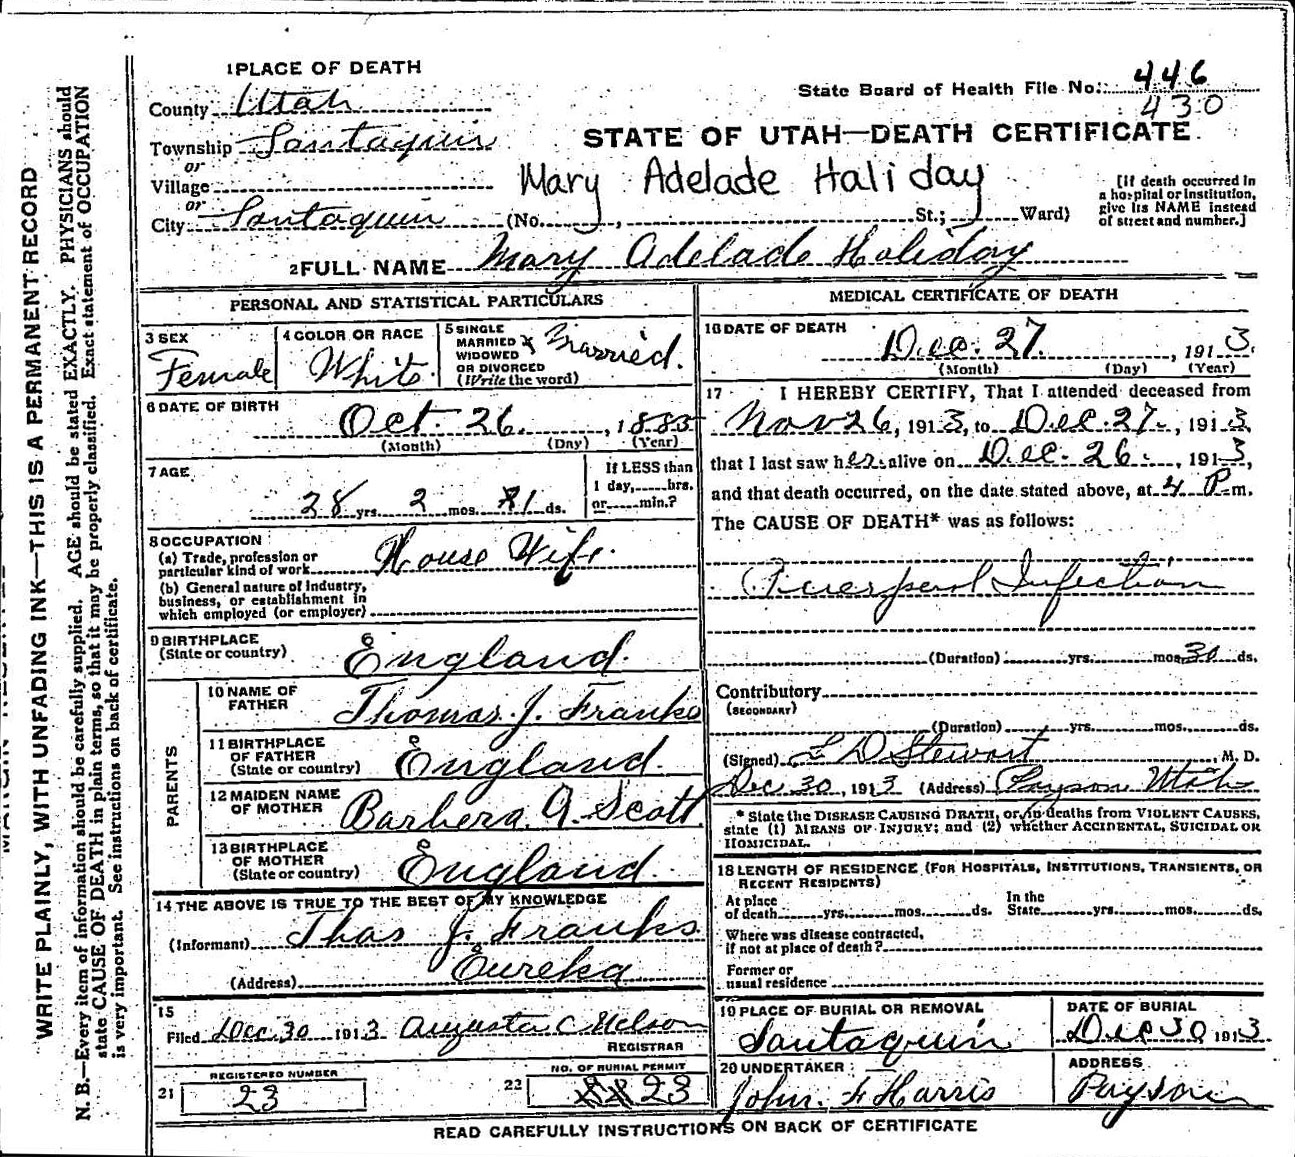 WRITE PLAINLY, WITH UNFADING INK—THIS IS A PERMANENT RECORD
N. B.—Every item of information should be carefully supplied. AGE should be stated EXACTLY. PHYSICIANS should
state CAUSE OF DEATH in plain terms, so that it may be properly classified. Exact statement of OCCUPATION
is very important. See instructions on back of certificate.
1 PLACE OF DEATH
County Utah
Township Santaquin
or
Village
or
City Santaquin (No. , St.; Ward)
State Board of Health File No. 446
430
STATE OF UTAH—DEATH CERTIFICATE
Mary Adelade Haliday
[If death occurred in
a hospital or institution,
give its NAME instead
of street and number.]
2 FULL NAME Mary Adelade Haliday
PERSONAL AND STATISTICAL PARTICULARS
3 SEX
Female
4 COLOR OR RACE
White
5 SINGLE
MARRIED x
WIDOWED
OR DIVORCED
(Write the word)
Married.
6 DATE OF BIRTH
Oct. 26. , 1885
(Month) (Day) (Year)
7 AGE
28 yrs. 2 mos. 1 ds.
If LESS than
1 day, hrs.
or min.?
8 OCCUPATION
(a) Trade, profession or
particular kind of work House Wife.
(b) General nature of industry,
business, or establishment in
which employed (or employer)
9 BIRTHPLACE
(State or country) England.
PARENTS
10 NAME OF
FATHER Thomas. J. Franks
11 BIRTHPLACE
OF FATHER
(State or country) England.
12 MAIDEN NAME
OF MOTHER Barbera. A. Scott
13 BIRTHPLACE
OF MOTHER
(State or country) England.
14 THE ABOVE IS TRUE TO THE BEST OF MY KNOWLEDGE
(Informant) Thos J. Franks.
(Address) Eureka
15
Filed Dec. 30 1913 Augusta C Nelson
REGISTRAR
REGISTERED NUMBER
21 23
NO. OF BURIAL PERMIT
22 23
MEDICAL CERTIFICATE OF DEATH
16 DATE OF DEATH
Dec. 27. , 1913.
(Month) (Day) (Year)
17 I HEREBY CERTIFY, That I attended deceased from
Nov 26, 1913, to Dec. 27., 1913,
that I last saw her alive on Dec. 26., 1913,
and that death occurred, on the date stated above, at 4 P m.
The CAUSE OF DEATH* was as follows:
Puerperal Infection
(Duration) yrs. mos. 30 ds.
Contributory
(SECONDARY)
(Duration) yrs. mos. ds.
(Signed) L D Stewart , M. D.
Dec 30, 1913 (Address) Payson Utah
* State the DISEASE CAUSING DEATH, or, in deaths from VIOLENT CAUSES,
state (1) MEANS OF INJURY; and (2) whether ACCIDENTAL, SUICIDAL OR
HOMICIDAL.
18 LENGTH OF RESIDENCE (FOR HOSPITALS, INSTITUTIONS, TRANSIENTS, OR
RECENT RESIDENTS)
At place
of death yrs. mos. ds.
In the
State yrs. mos. ds.
Where was disease contracted,
if not at place of death?
Former or
usual residence
19 PLACE OF BURIAL OR REMOVAL
Santaquin
DATE OF BURIAL
Dec 30 1913
20 UNDERTAKER
John. F Harris
ADDRESS
Payson
READ CAREFULLY INSTRUCTIONS ON BACK OF CERTIFICATE